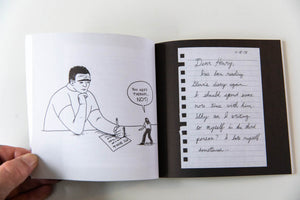 YOU AREN'T
THERAPY,
NOT!
Dear Henry,
has been reading
diary again.
I should spend some
more time with him.
Why am I writing
to myself in the third
person? I hate myself
sometimes...